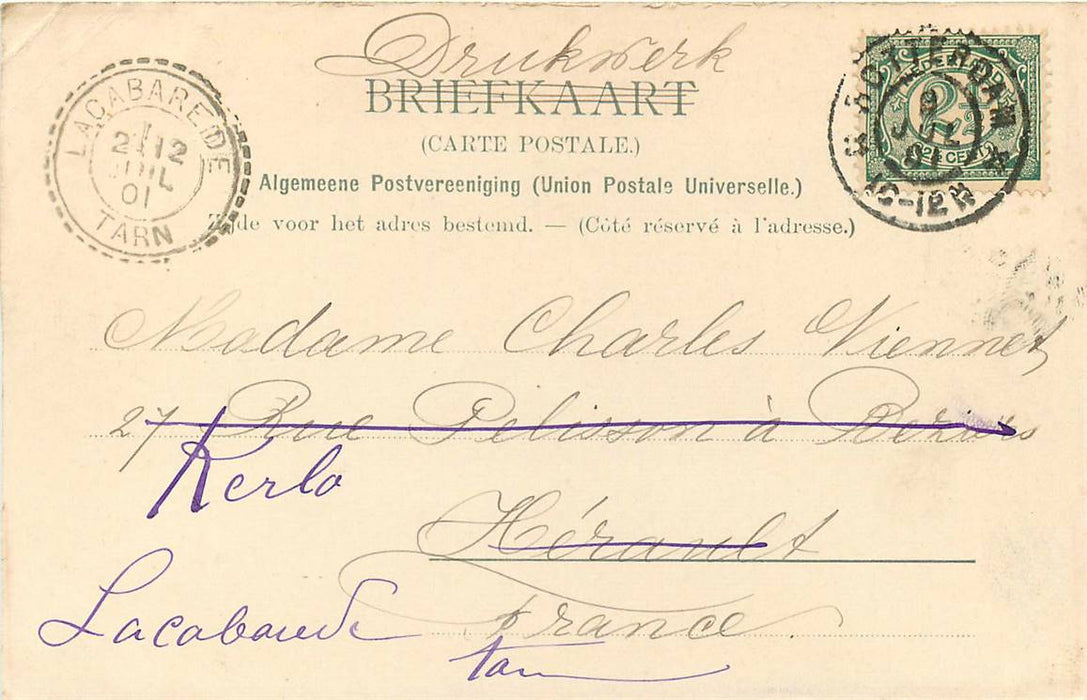 Drukwerk
BRIEFKAART
(CARTE POSTALE.)
Algemeene Postvereeniging (Union Postale Universelle.)
Zijde voor het adres bestemd. — (Côté réservé à l'adresse.)
LACABAREDE
12
JUIL
01
TARN
ROTTERDAM
10-12V
2½
2½ CENT
Madame Charles Viennet
27 Rue Pelisson à Beziers
Kerlo
Hérault
Lacabarede
France.
Tarn